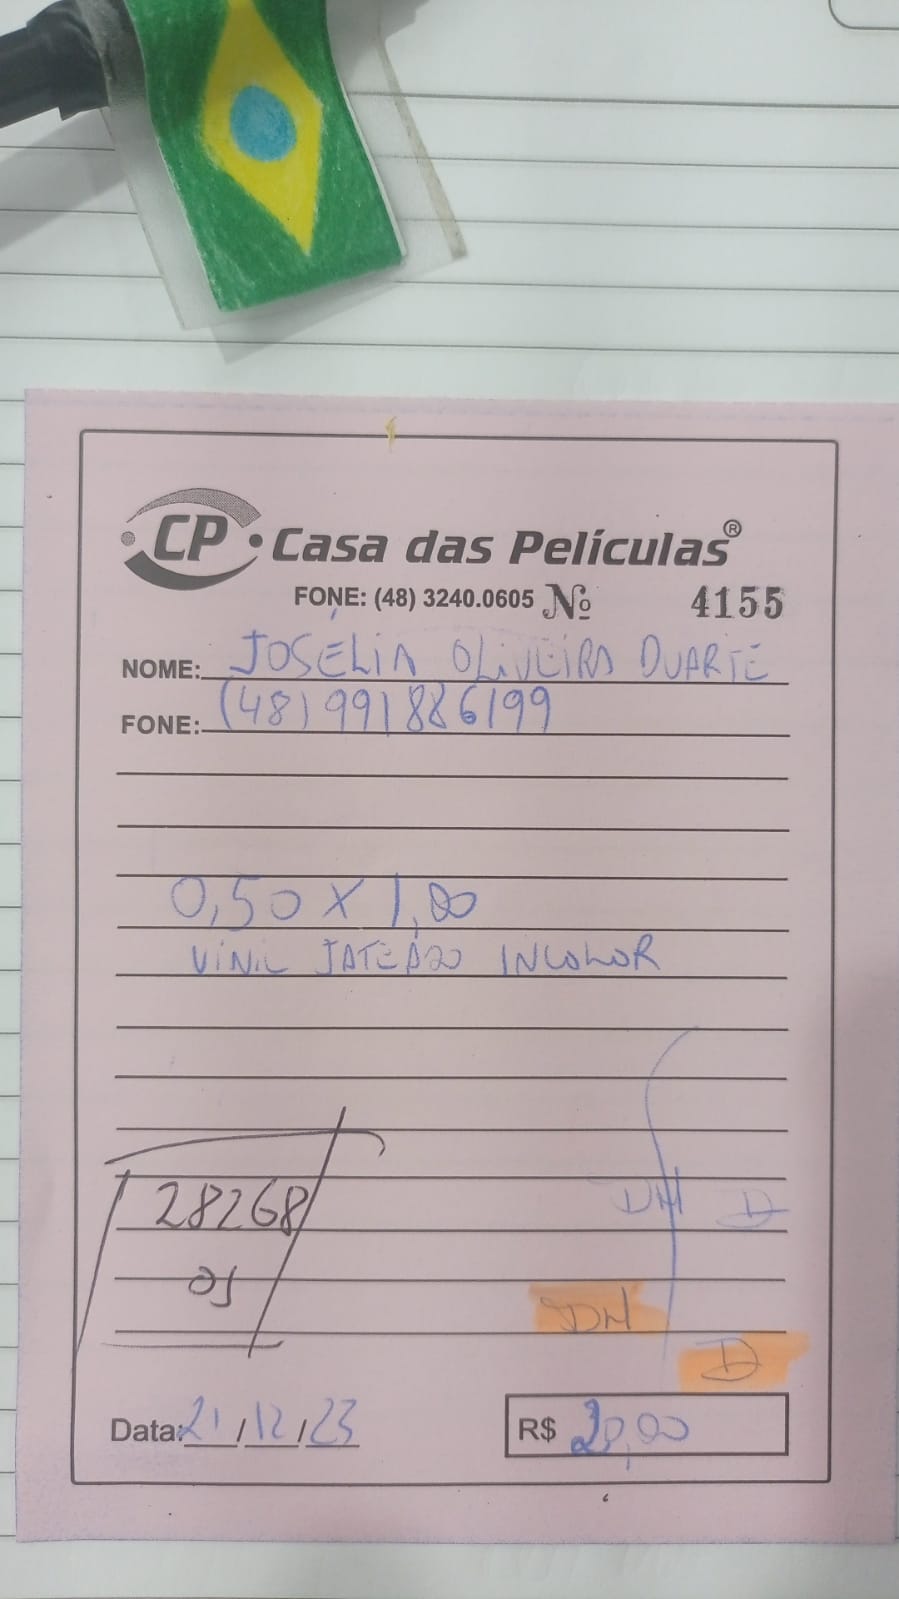 CP Casa das Películas®
FONE: (48) 3240.0605 Nº 4155
NOME: JOSÉLIA OLIVEIRA DUARTE
FONE: (48) 991886199
0,50 X 1,00
VINIL JATEADO INCOLOR
28268
DH D
DH
D
Data: 21/12/23 R$ 20,00